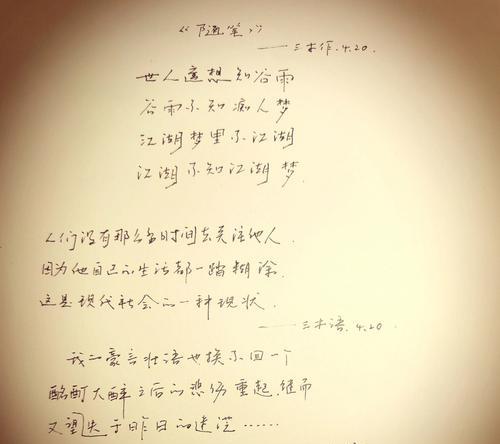 《随笔》
——三木作.4.20.
世人遥想知谷雨
谷雨不知痴人梦
江湖梦里不江湖
江湖不知江湖梦.
人们没有那么多时间去关注他人.
因为他自己的生活都一踏糊涂.
这是现代社会的一种现状.
——三木语.4.20
我的豪言壮语也换不回一个
酩酊大醉之后的悲伤重起.继而
又望失于昨日的迷茫……